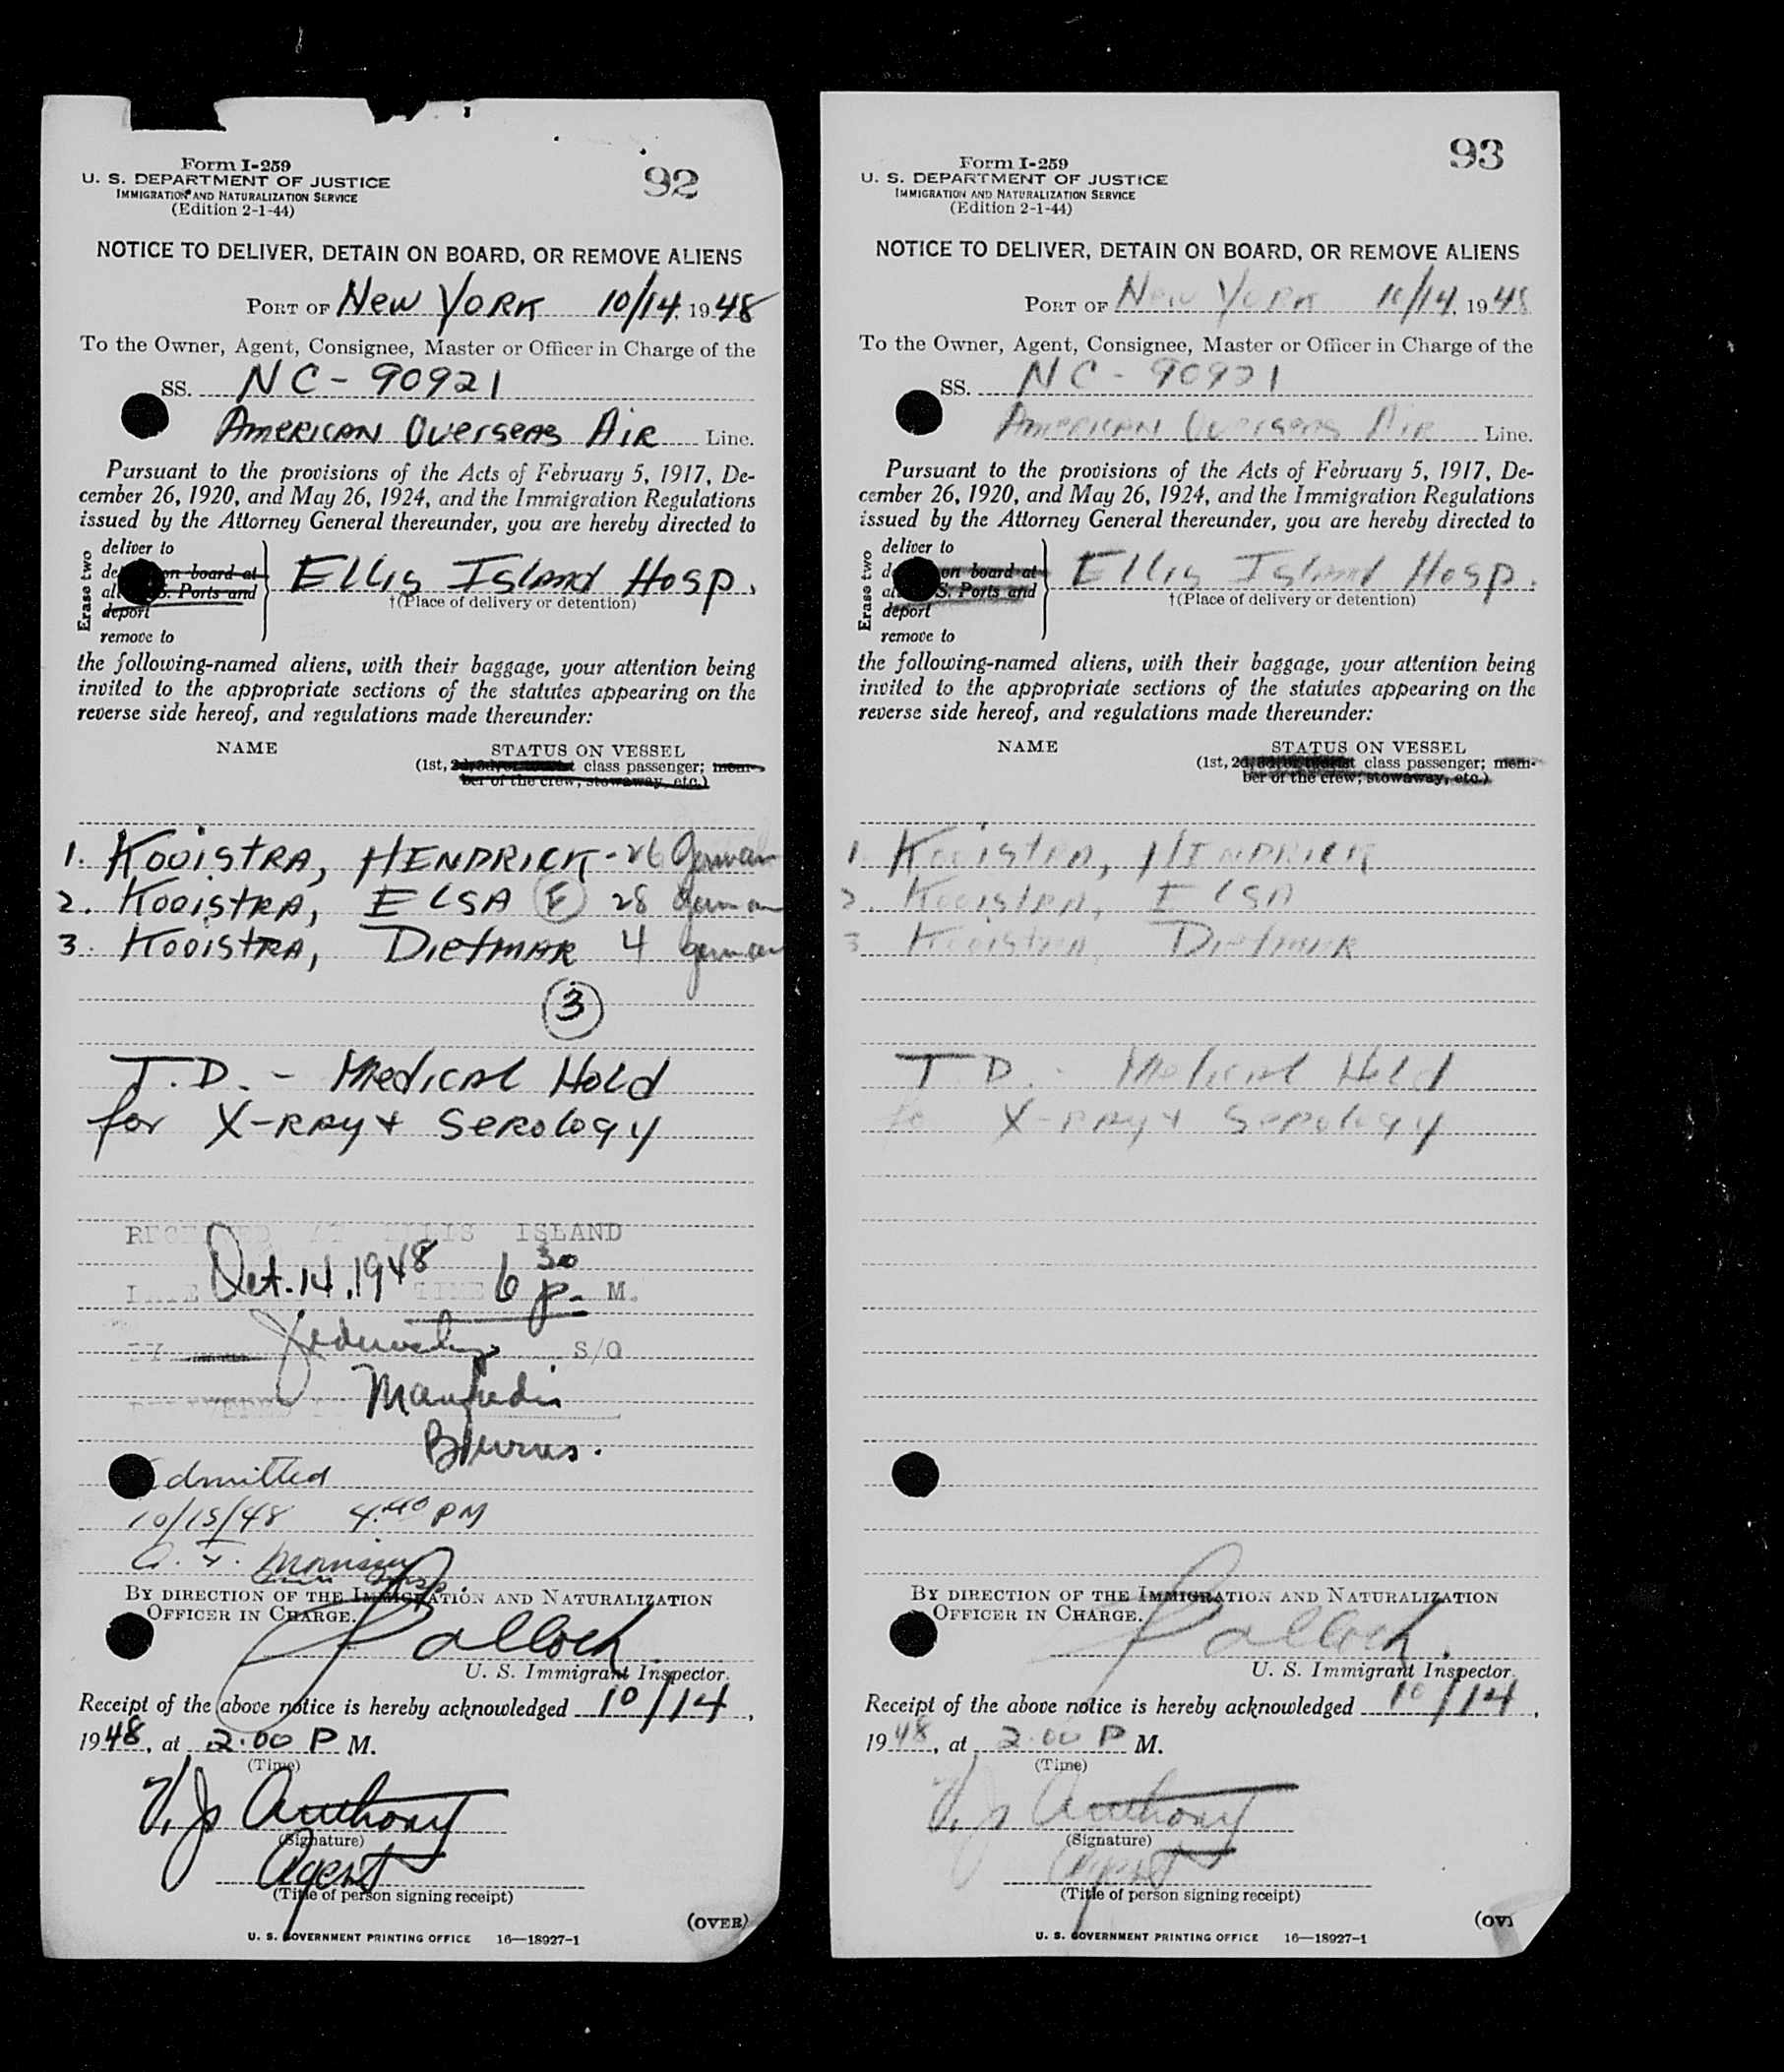 92
Form I-259
U. S. DEPARTMENT OF JUSTICE
IMMIGRATION AND NATURALIZATION SERVICE
(Edition 2-1-44)
NOTICE TO DELIVER, DETAIN ON BOARD, OR REMOVE ALIENS
PORT OF New YORK 10/14, 1948
To the Owner, Agent, Consignee, Master or Officer in Charge of the
SS. NC-90921
AMERICAN OverseAs AIR Line.
Pursuant to the provisions of the Acts of February 5, 1917, De-
cember 26, 1920, and May 26, 1924, and the Immigration Regulations
issued by the Attorney General thereunder, you are hereby directed to
Erase two
deliver to
on board at
S. Ports and
deport
remove to
Ellis Island Hosp.
†(Place of delivery or detention)
the following-named aliens, with their baggage, your attention being
invited to the appropriate sections of the statutes appearing on the
reverse side hereof, and regulations made thereunder:
NAME STATUS ON VESSEL
(1st, 2d, 3d, or tourist class passenger; mem-
ber of the crew, stowaway, etc.)
1. KooistRA, HENDRICK - 26 German
2. KooistRA, ELSA F 28 German
3. KooistRA, DietMAR 4 German
3
T.D. - Medical Hold
for X-RAy + Serology
RECEIVED AT ELLIS ISLAND
DATE Oct. 14, 1948 TIME 6 30 P. M.
BY S/O
Manfredi
Admitted
10/15/48 4:40 PM
BY DIRECTION OF THE IMMIGRATION AND NATURALIZATION
OFFICER IN CHARGE.
Pollock
U. S. Immigrant Inspector.
Receipt of the above notice is hereby acknowledged 10/14,
1948, at 2:00 P M.
(Time)
V. J. Anthony
(Signature)
Agent
(Title of person signing receipt)
(OVER)
U. S. GOVERNMENT PRINTING OFFICE 16—18927-1
93
Form I-259
U. S. DEPARTMENT OF JUSTICE
IMMIGRATION AND NATURALIZATION SERVICE
(Edition 2-1-44)
NOTICE TO DELIVER, DETAIN ON BOARD, OR REMOVE ALIENS
PORT OF New YORK 10/14, 1948
To the Owner, Agent, Consignee, Master or Officer in Charge of the
SS. NC-90921
AMERICAN OverseAs AIR Line.
Pursuant to the provisions of the Acts of February 5, 1917, De-
cember 26, 1920, and May 26, 1924, and the Immigration Regulations
issued by the Attorney General thereunder, you are hereby directed to
Erase two
deliver to
on board at
S. Ports and
deport
remove to
Ellis Island Hosp.
†(Place of delivery or detention)
the following-named aliens, with their baggage, your attention being
invited to the appropriate sections of the statutes appearing on the
reverse side hereof, and regulations made thereunder:
NAME STATUS ON VESSEL
(1st, 2d, 3d, or tourist class passenger; mem-
ber of the crew, stowaway, etc.)
1. KooistRA, HENDRICK
2. KooistRA, ELSA
3. KooistRA, DietMAR
T.D. - Medical Hold
for X-RAy + Serology
BY DIRECTION OF THE IMMIGRATION AND NATURALIZATION
OFFICER IN CHARGE.
Pollock
U. S. Immigrant Inspector.
Receipt of the above notice is hereby acknowledged 10/14,
1948, at 2:00 P M.
(Time)
V. J. Anthony
(Signature)
Agent
(Title of person signing receipt)
(OV
U. S. GOVERNMENT PRINTING OFFICE 16—18927-1